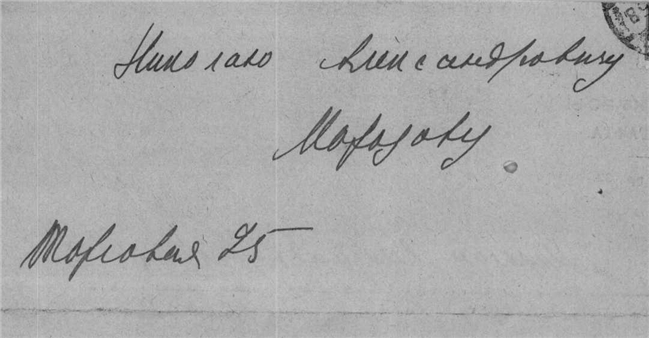 Николаю Александровичу
Морозову
Торговая 25